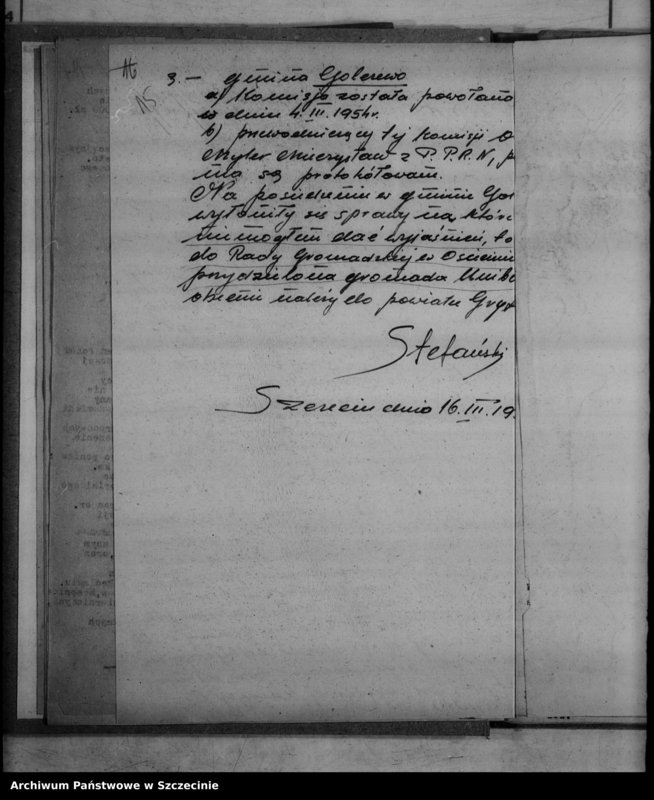 16
15
3. — gmina Golczewo
a) Komisja została powołana
w dniu 4.III.1954r.
b) przewodniczący tej komisji
Mieczysław z P.P.R.N,
są protokółowani.
Na posiedzeniu w gminie Gol
wyłoniły się sprawy na któr
nie mogłem dać wyjaśnień, to
do Rady Gromadzkiej w
przydzielona gromada
obecnie należy do powiatu Gryf
Stefański
Szczecin dnia 16.III.19
Archiwum Państwowe w Szczecinie